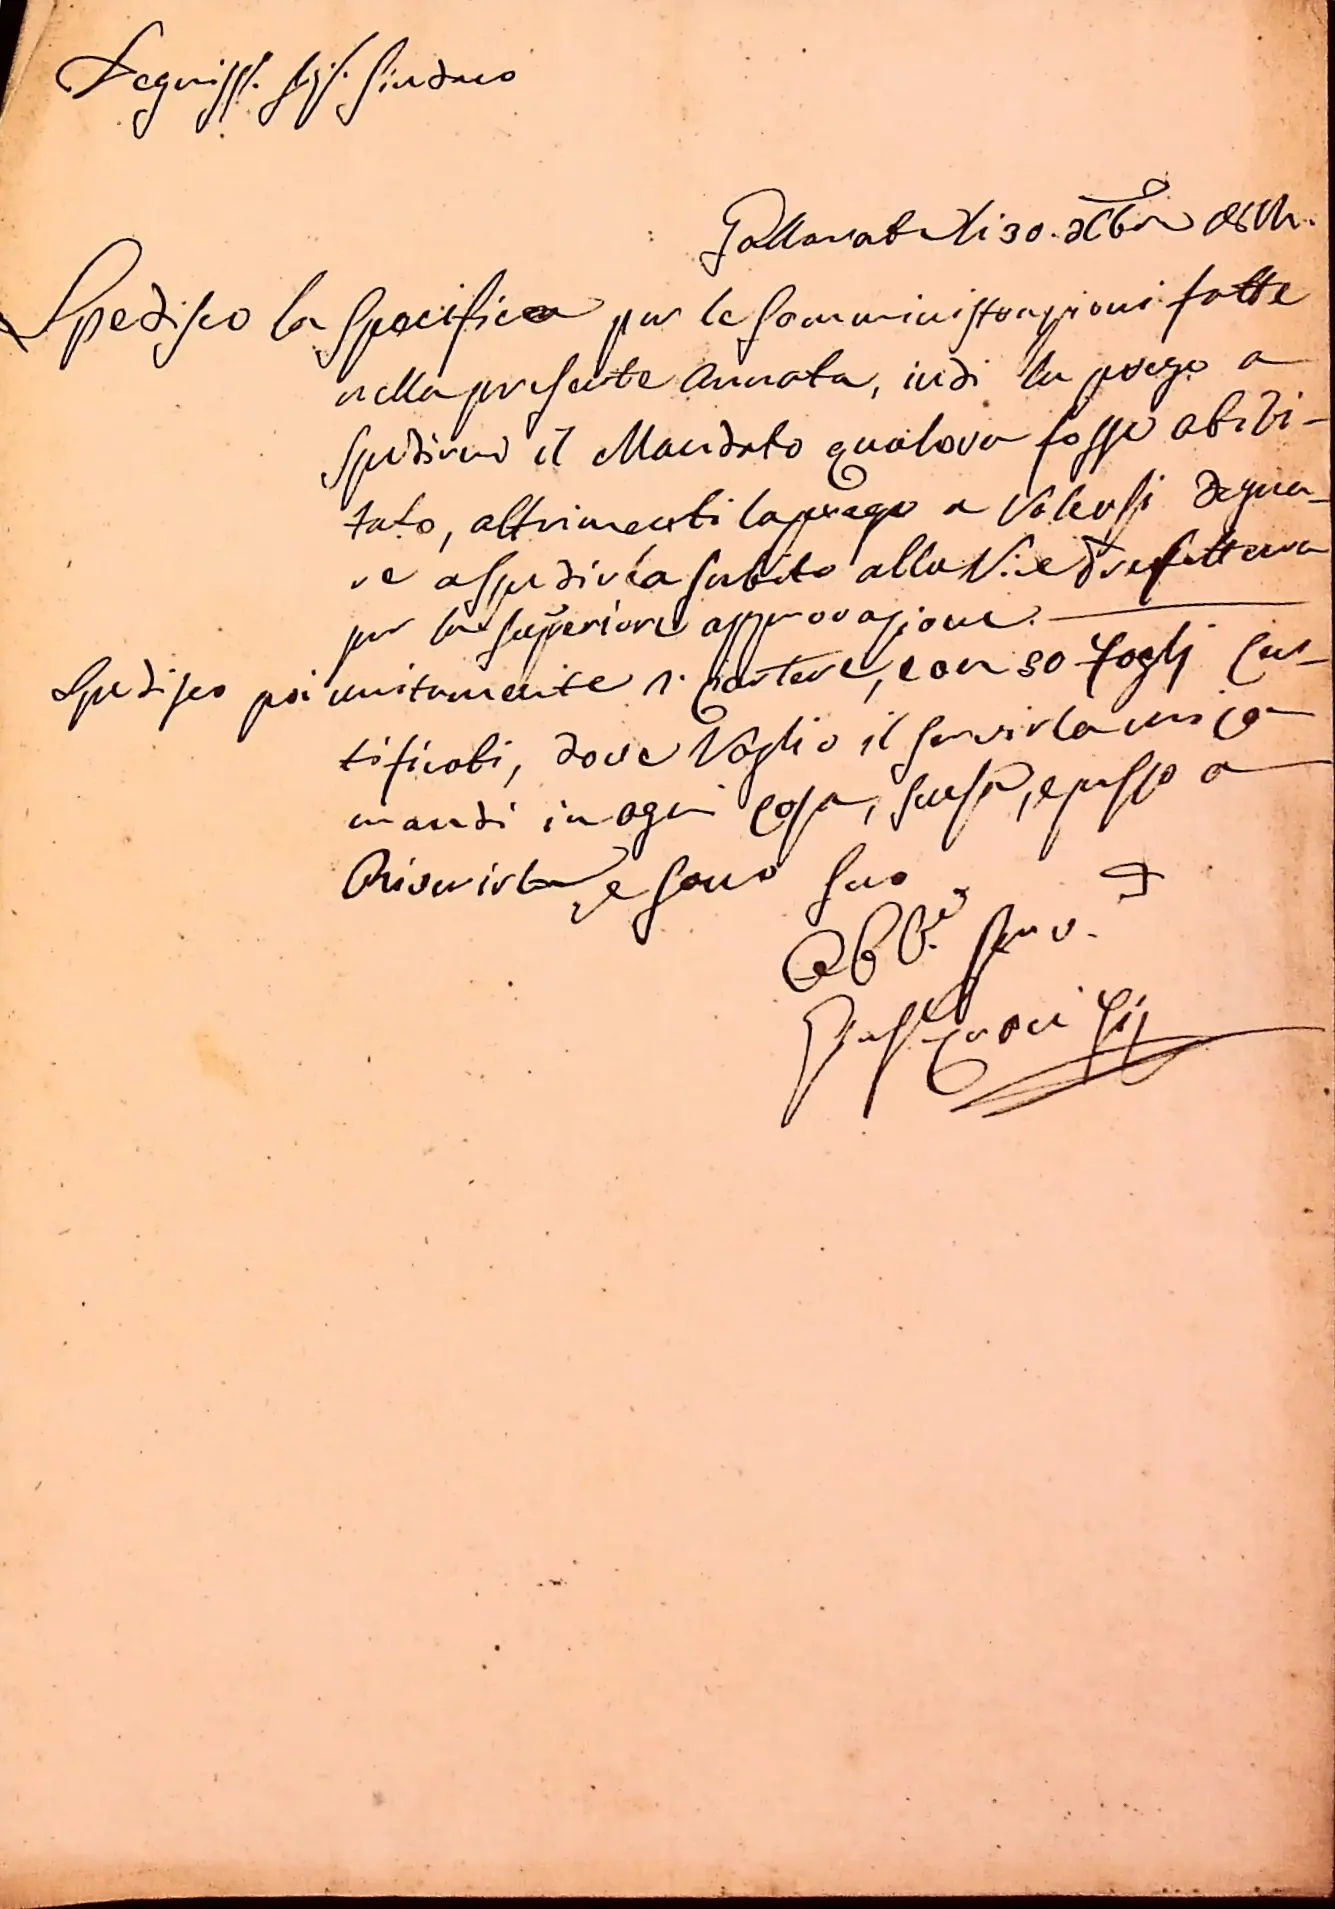 Degniss. Sig. Sindaco
Gallarate li 30. Xbre
Spedisco la Specifica per le Somministrazioni fatte
nella presente Annata, indi la prego a
spedirmi il Mandato qualora fosse abili-
tato, altrimenti la prego a Volersi degna-
re a spedirla subito alla Vice Prefettura
per la superiore approvazione.
Spedisco poi unitamente con 50 fogli Cer-
tificati, dove Voglio il servirla mi co-
mandi in ogni cosa, scusa, e passo a
Riverirla, e sono suo
Obb. Serv.